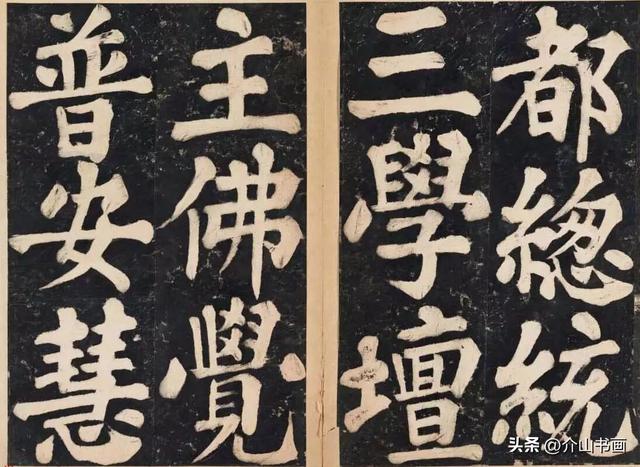 都總統
三學壇
主佛覺
普安慧
头条 @介山书画